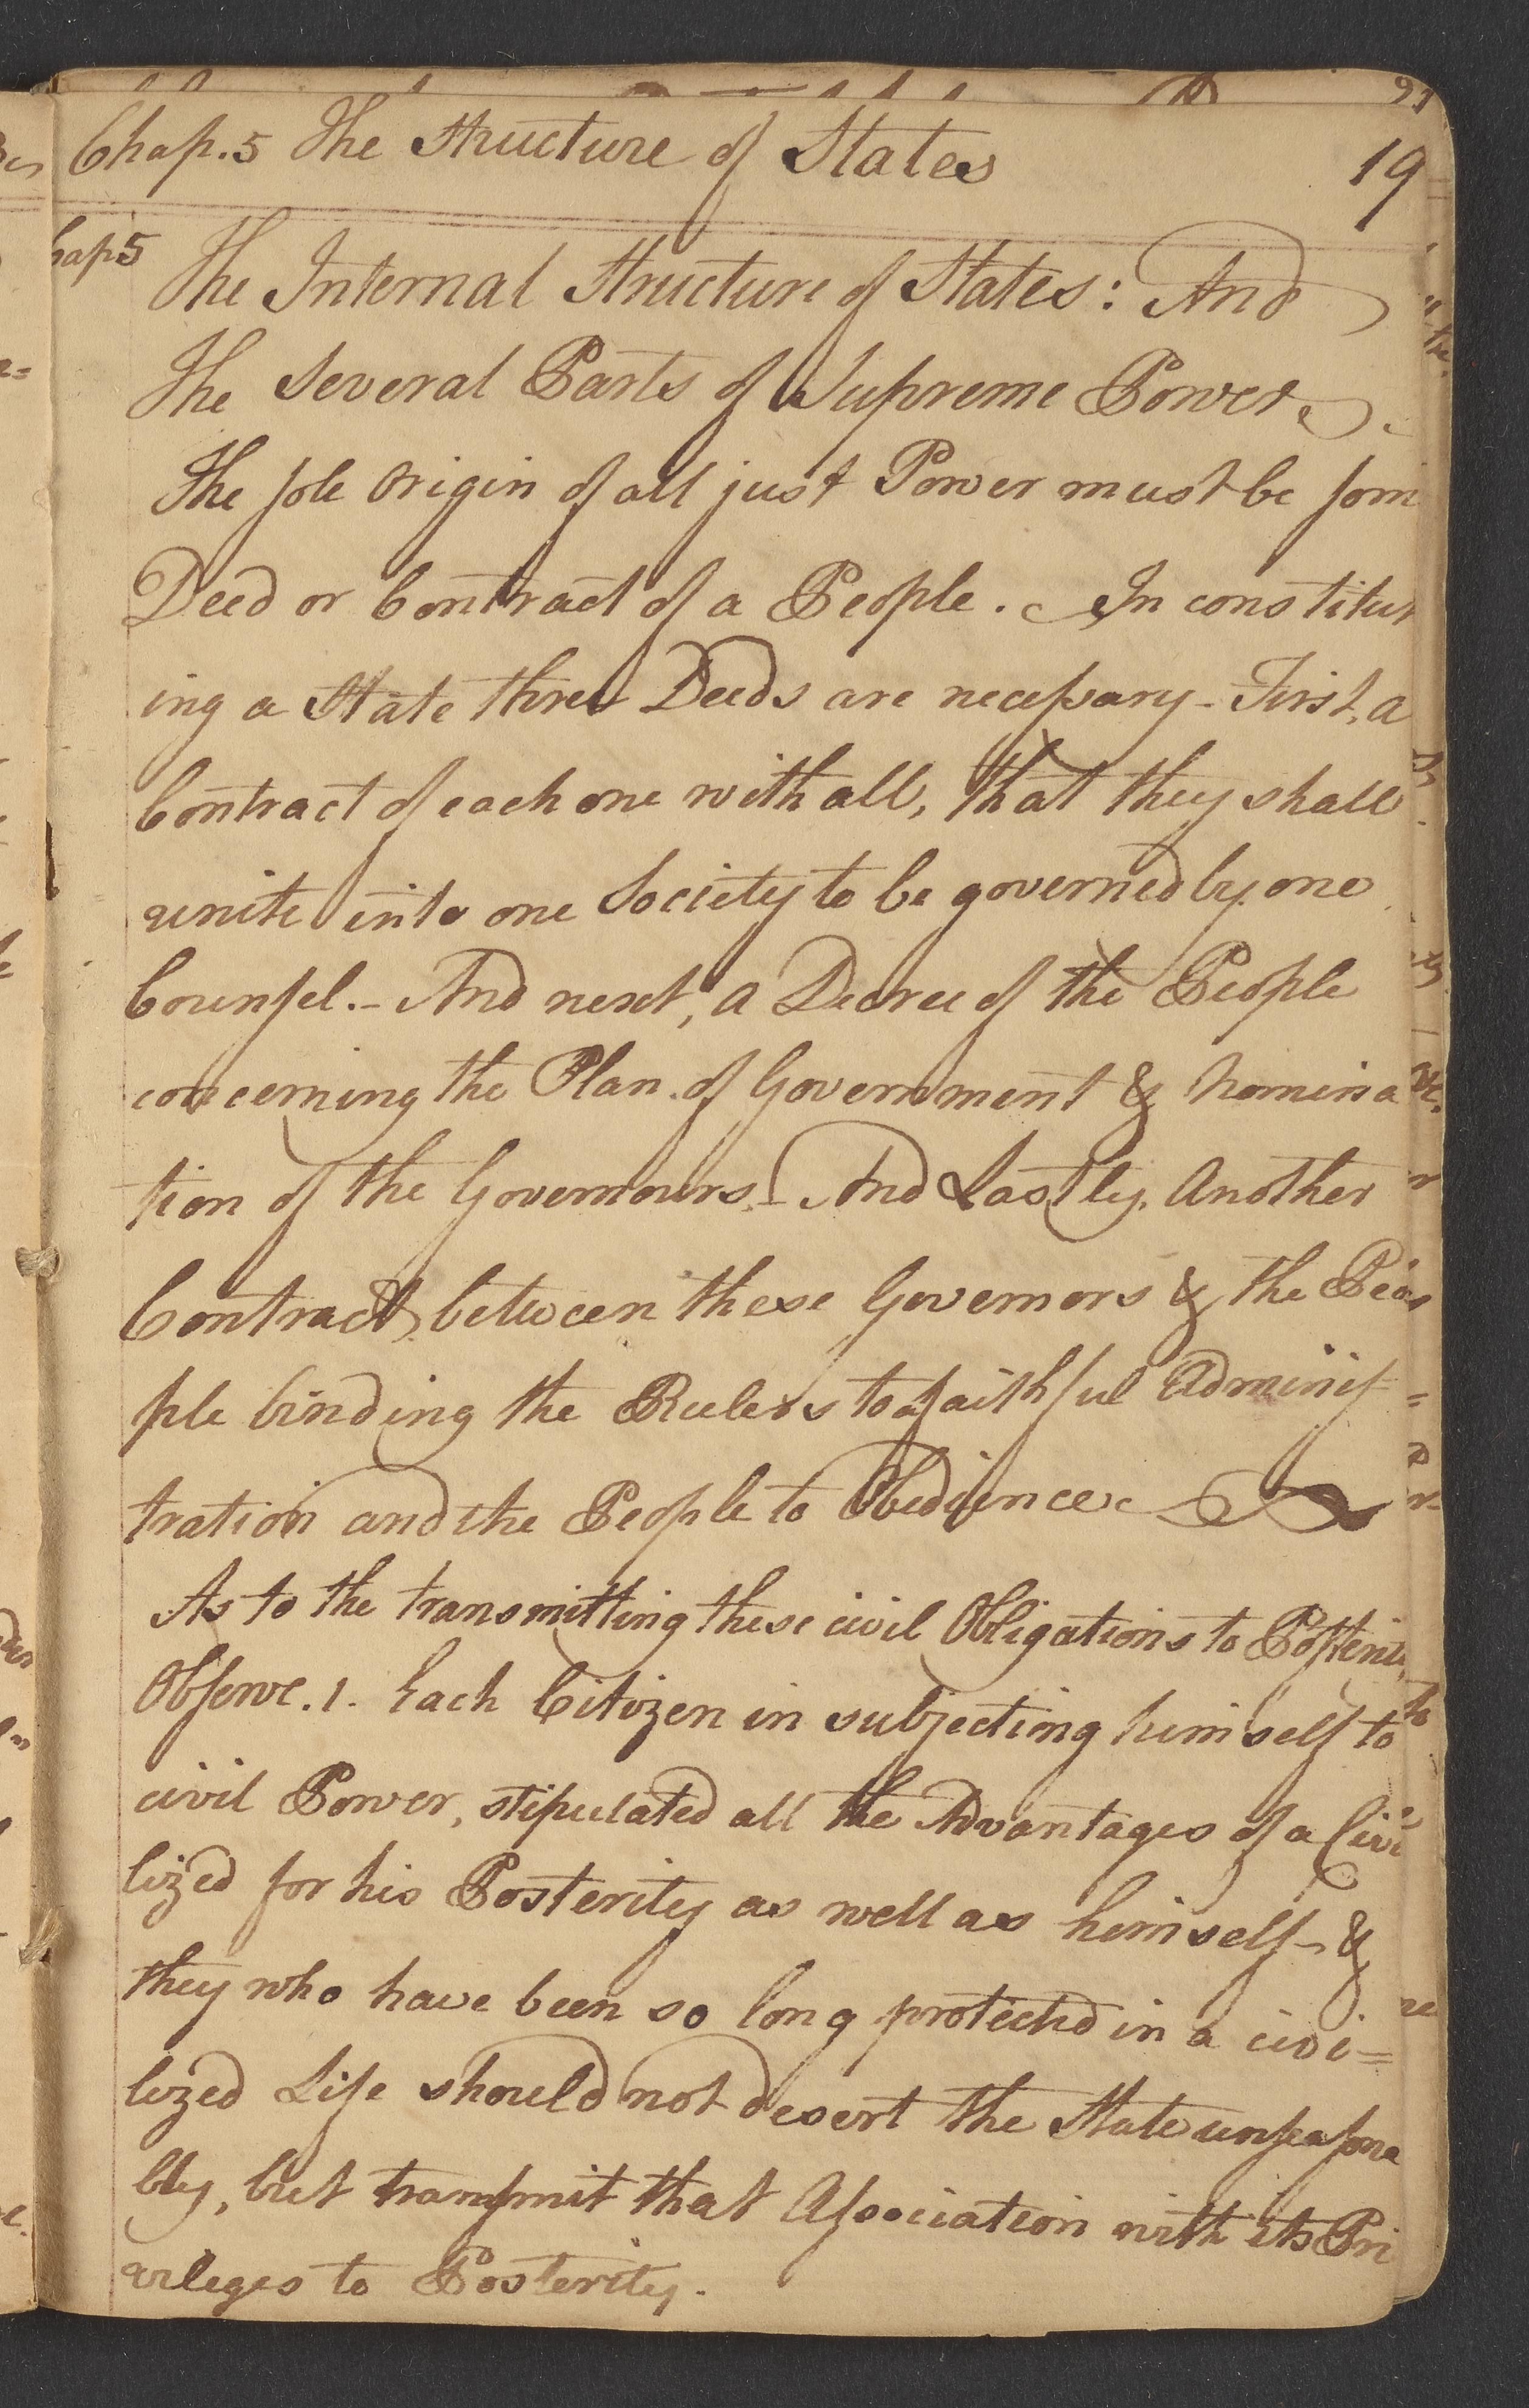 Chap. 5 The Structure of States 19
The Internal Structure of States: And
The Several Parts of Supreme Power.
The sole Origin of all just Power must be som
Deed or Contract of a People. In constitut
ing a State three Deeds are necessary - First, a
Contract of each one with all, that they shall
unite into one Society to be governed by one
Counsel. - And next, a Decree of the People
concerning the Plan of Government & Nomina
tion of the Governours. - And Lastly, Another
Contract, between these Governors & the Peo
ple binding the Rulers to a faithful Adminis
tration and the People to Obedience.
As to the transmitting these civil Obligations to
Observe. 1. Each Citizen in subjecting himself to
civil Power, stipulated all the Advantages of a Civi
lized for his Posterity as well as himself - &
they who have been so long protected in a civi=
lized Life should not desert the State unseasona
bly, but transmit that Association with its Pri
vileges to Posterity.